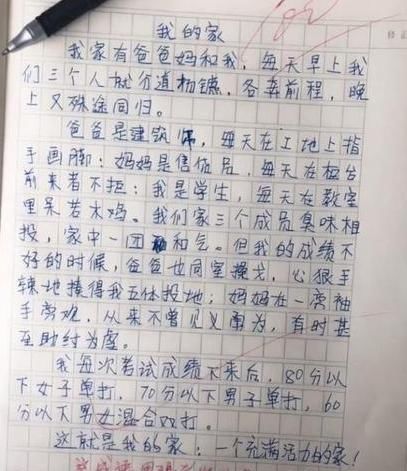 我的家
我家有爸爸妈和我，每天早上我
们三个人就分道扬镳，各奔前程，晚
上又殊途同归。
爸爸是建筑师，每天在工地上指
手画脚；妈妈是售货员，每天在柜台
前来者不拒；我是学生，每天在教室
里呆若木鸡。我们家三个成员臭味相
投，家中一团和气。但我的成绩不
好的时候，爸爸也同室操戈，心狠手
辣地揍得我五体投地；妈妈在一旁袖
手旁观，从来不曾见义勇为，有时甚
至助纣为虐。
我每次考试成绩下来后，80分以
下女子单打，70分以下男子单打，60
分以下男女混合双打。
这就是我的家，一个充满活力的家！